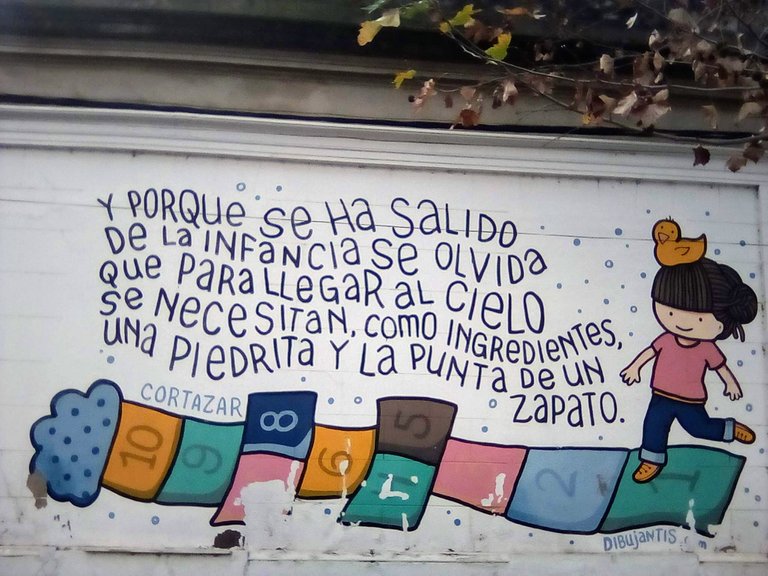 Y PORQUE SE HA SALIDO
DE LA INFANCIA SE OLVIDA
QUE PARA LLEGAR AL CIELO
SE NECESITAN, COMO INGREDIENTES,
UNA PIEDRITA Y LA PUNTA DE UN
ZAPATO.
CORTAZAR
10 9 8 6 5 4 2 1
DIBUJANTIS